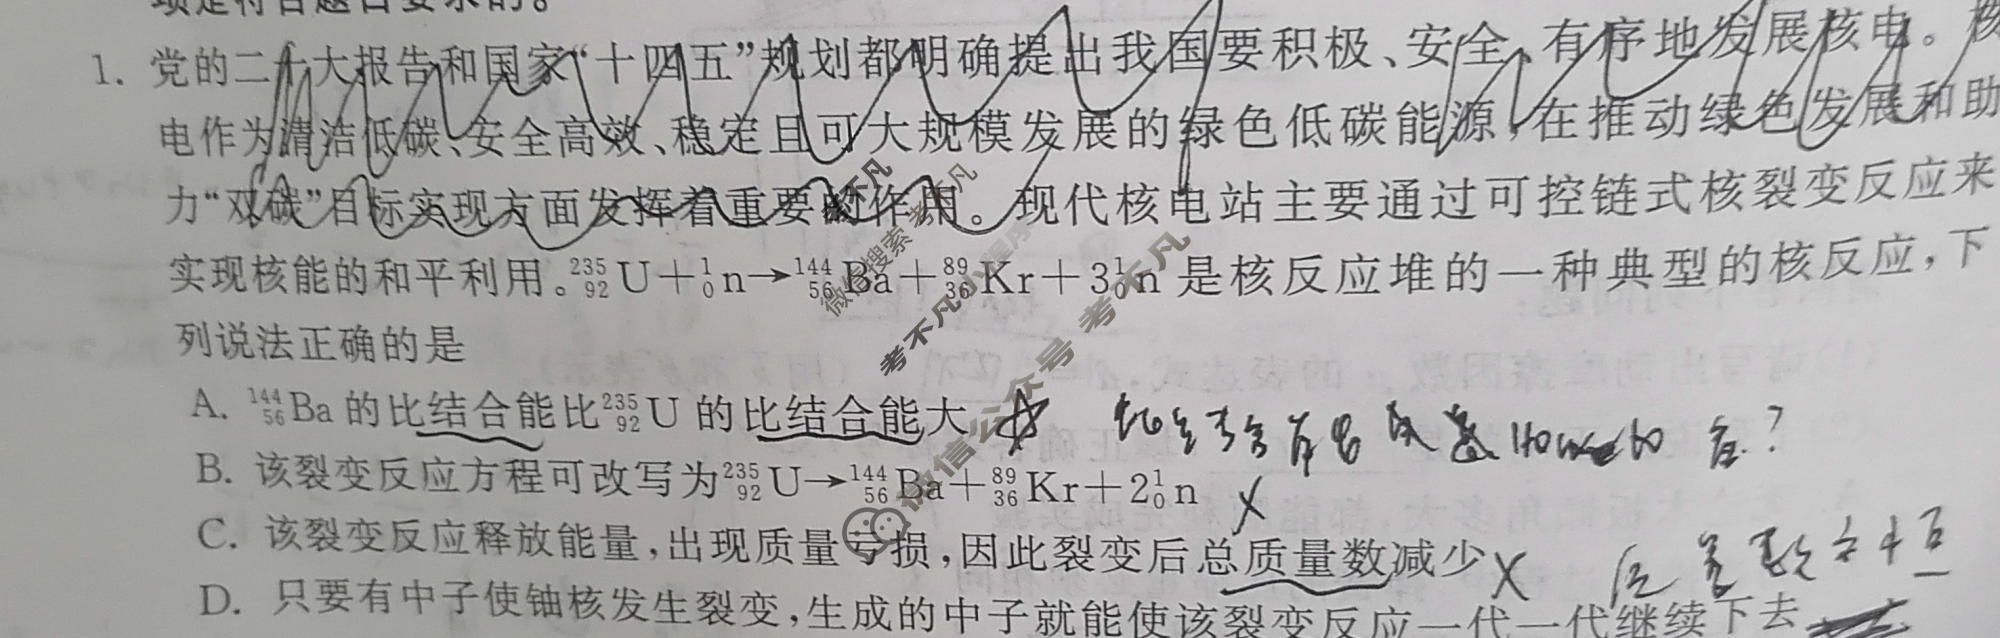 项是符合题目要求的。
1. 党的二十大报告和国家“十四五”规划都明确提出我国要积极、安全、有序地发展核电。核
电作为清洁低碳、安全高效、稳定且可大规模发展的绿色低碳能源,在推动绿色发展和助
力“双碳”目标实现方面发挥着重要的作用。现代核电站主要通过可控链式核裂变反应来
实现核能的和平利用。²³⁵₉₂U+¹₀n→¹⁴⁴₅₆Ba+⁸⁹₃₆Kr+3¹₀n 是核反应堆的一种典型的核反应,下
列说法正确的是
A. ¹⁴⁴₅₆Ba 的比结合能比²³⁵₉₂U 的比结合能大
B. 该裂变反应方程可改写为²³⁵₉₂U→¹⁴⁴₅₆Ba+⁸⁹₃₆Kr+2¹₀n ×
C. 该裂变反应释放能量,出现质量亏损,因此裂变后总质量数减少 ×
D. 只要有中子使铀核发生裂变,生成的中子就能使该裂变反应一代一代继续下去
微信搜索
考不凡小程序
微信公众号 考不凡